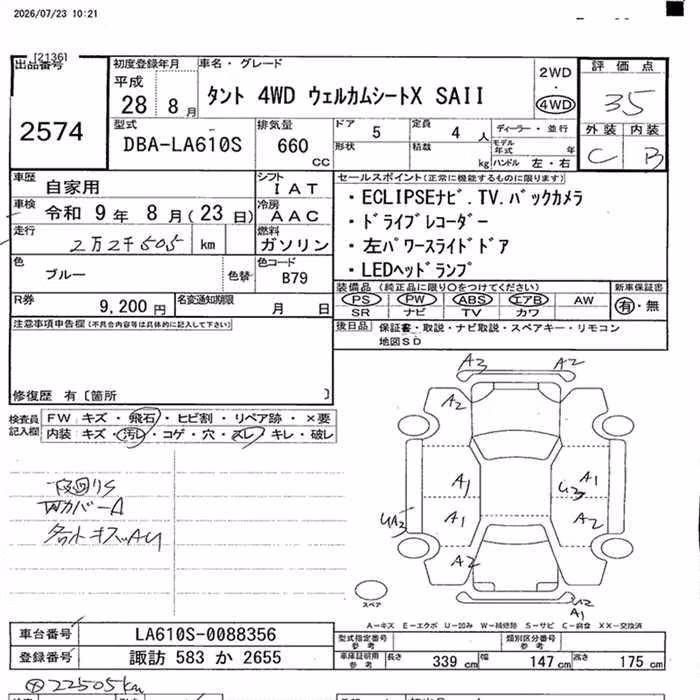 2026/07/23 10:21
[2136]
出品番号
2574
初度登録年月
平成
28 8月
車名・グレード
タント 4WD ウェルカムシートX SAII
2WD
・
4WD
評価点
3.5
外装 内装
C B
型式
DBA-LA610S
排気量
660
CC
ドア
5
定員
4 人
形状
積載
kg
ディーラー・並行
モデル年式 年
ハンドル 左・右
車歴
自家用
シフト
IAT
車検
令和 9年 8月(23日)
冷房
AAC
走行
2万2千505 km
燃料
ガソリン
色
ブルー
色替
色コード
B79
セールスポイント(正常に機能するものに限ります)
・ECLIPSEナビ.TV.バックカメラ
・ドライブレコーダー
・左パワースライドドア
・LEDヘッドランプ
装備品(純正品に限り○をつけてください)
PS PW ABS エアB AW
SR ナビ TV カワ
新車保証書
有・無
R券
9,200円
名変通知期限
月 日
後日品
保証書・取説・ナビ取説・スペアキー・リモコン
地図SD
注意事項申告欄(不具合内容等は具体的に記入して下さい)
修復歴 有〔箇所 〕
検査員記入欄
FW キズ・飛石・ヒビ割・リペア跡・×要
内装 キズ・汚レ・コゲ・穴・スレ・キレ・破レ
下回りS
Wカバー A
A3 A2
A2
A1 A1
U3
UA3 A1 A2
A2
A2
A1
スペア
A−キズ E−エクボ U−凹み W−補修跡 S−サビ C−腐食 XX−交換済
車台番号
LA610S-0088356
登録番号
諏訪 583 か 2655
型式指定番号
参考
類別区分番号
参考
車庫証明用
参考
長さ 339 cm 幅 147 cm 高さ 175 cm
22505km